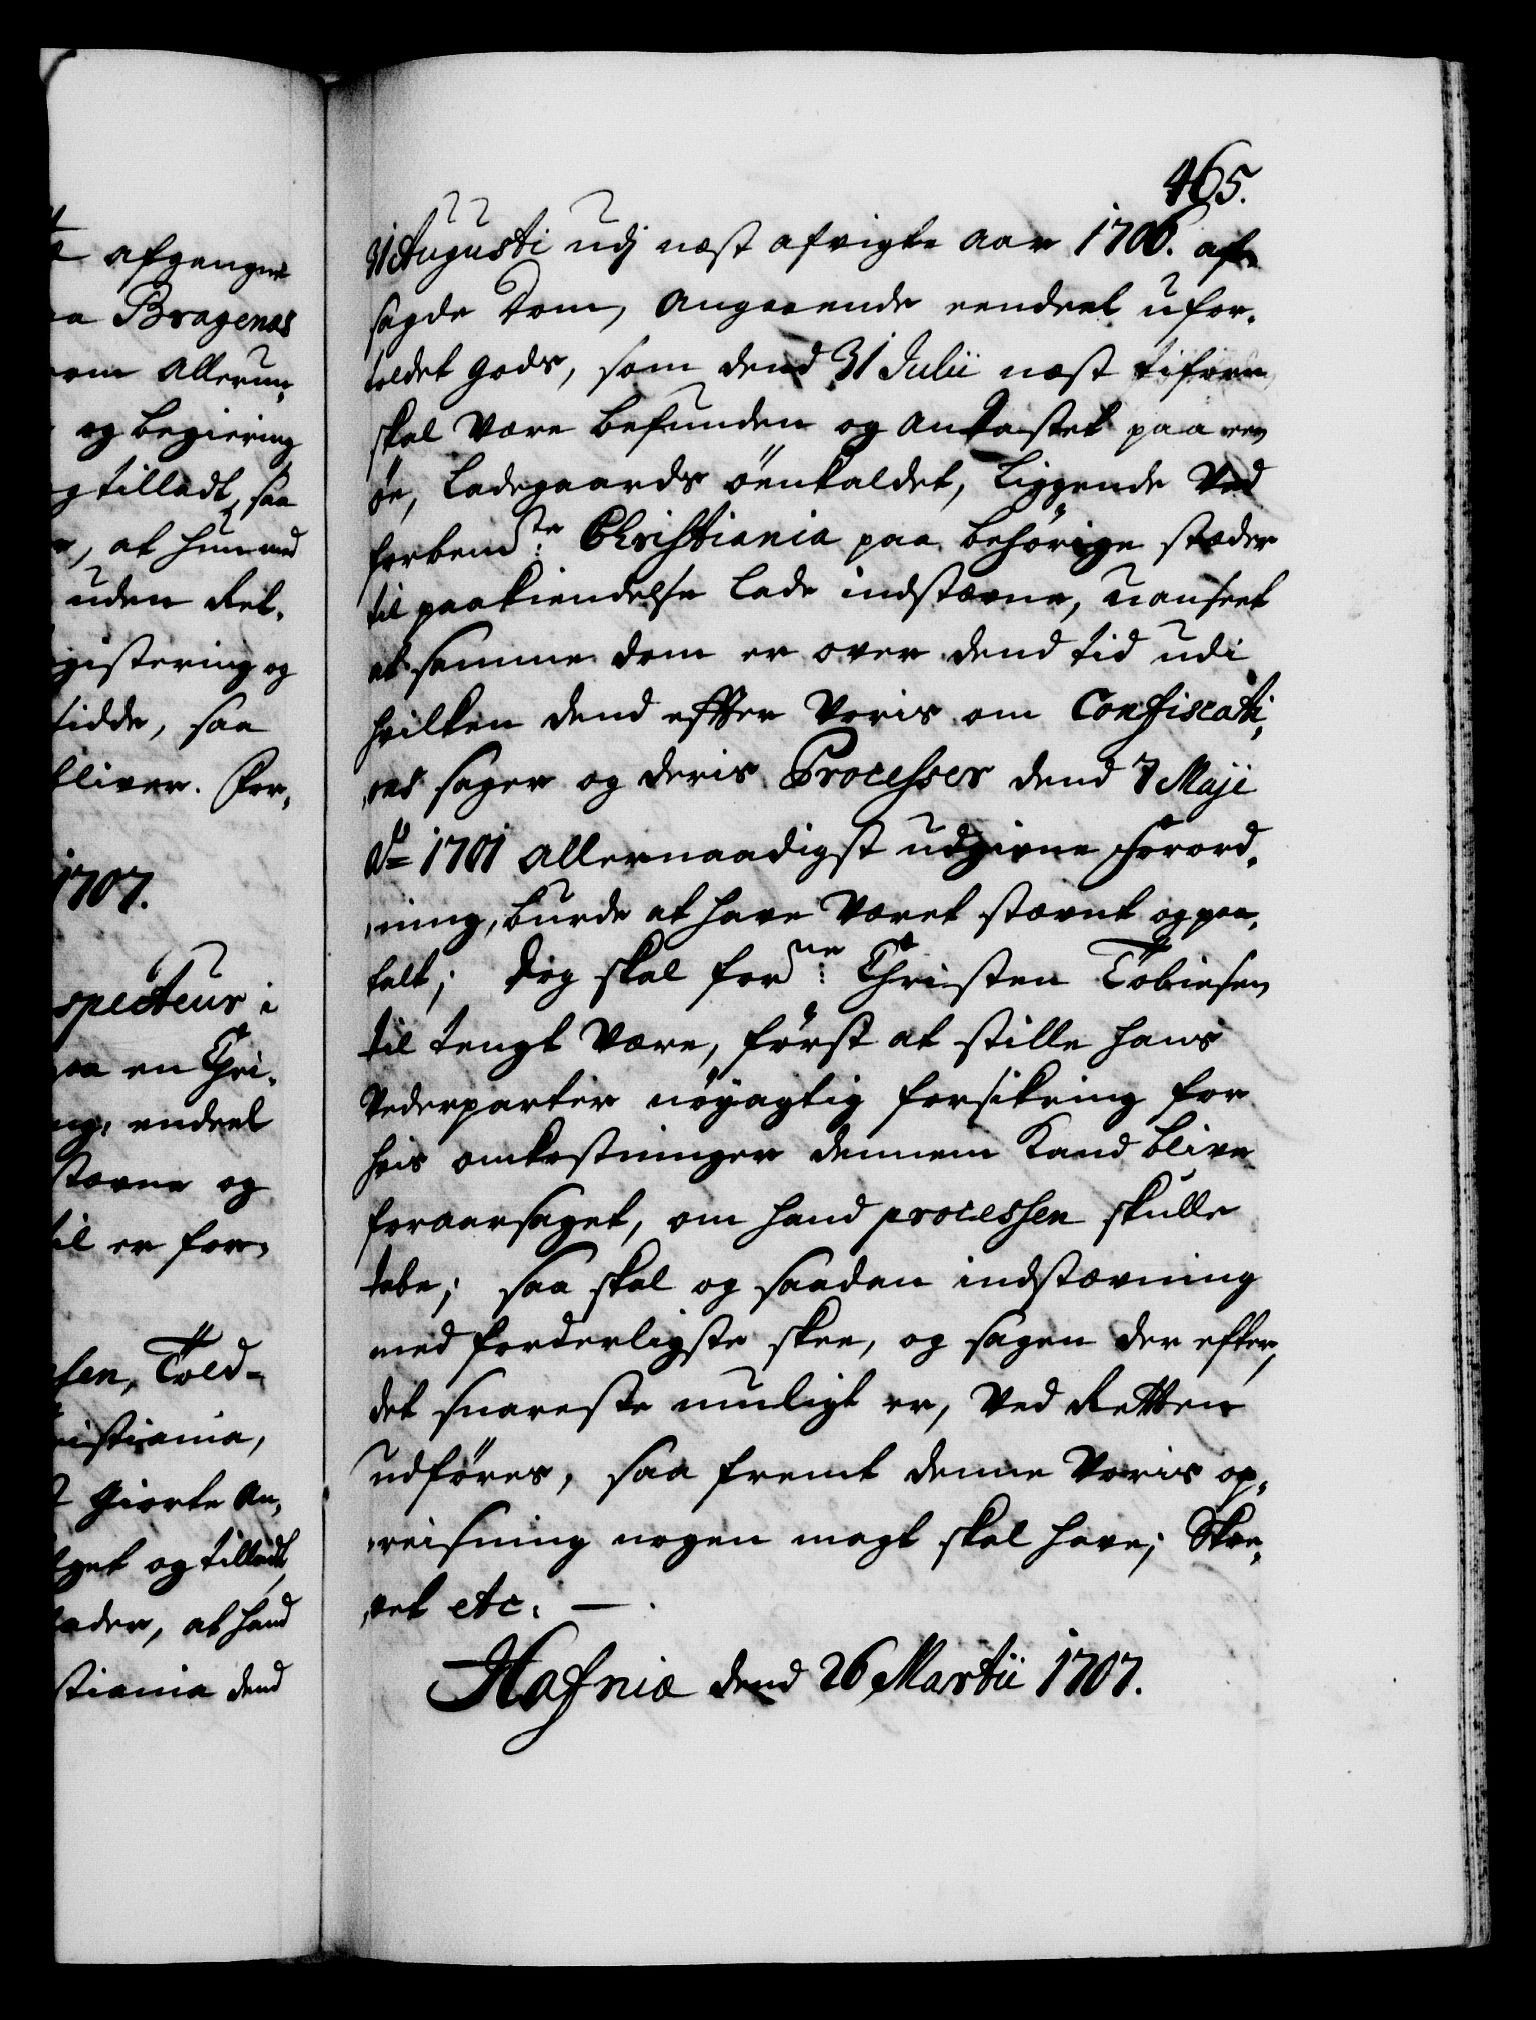 afgangne
Bragenæs
allerun-
og begiering
tilladt, saa
, at hun med
uden Ret-
gistering og
tidde, saa
bliver. For-
1707.
specteur i
en Chri-
endeel
stævne og
er for-
sen, Told-
istiania,
giorte An-
get og tilladt
ader, at hand
stiania dend
465.
31 Augusti udj næst afvigte Aar 1706. af-
sagde Dom, angaaende eendeel ufor-
toldet gods, som dend 31 Julii næst tilforn
skal være befunden og antastet paa een
øe, Ladegaards øen kaldet, liggende ved
forbemte: Christiania paa behörige stæder
til paakiendelse lade indstævne, uanseet
at samme dom er over dend tid udi
hvilken dend effter Voris om Confiscati-
ons sager og deris Processer dend 7 Maji
Ao 1701 allernaadigst udgivne Forord-
ning, burde at have været stævnt og paa-
talt; Dog skal forne: Christen Tobiesen
til tengt være, først at stille hans
Vederparter nöyagtig forsikring for
hvis omkostninger dennem kand blive
foraarsaget, om hand processen skulle
tabe; saa skal og saadan indstævning
med forderligste skee, og sagen der efter,
det snareste muligt er, ved Retten
udføres, saa fremt denne Voris op-
reisning nogen magt skal have; Skre-
vet etc. —.
Hafniæ dend 26 Martii 1707.